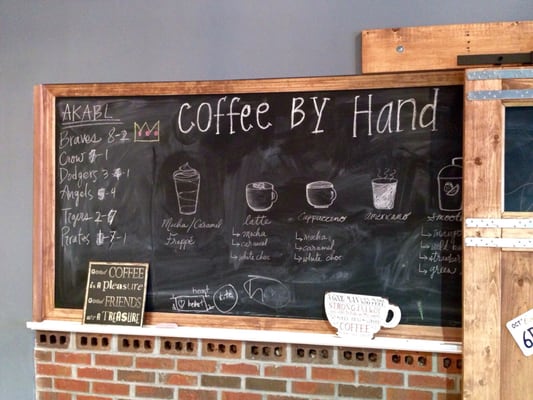 AKABL
Braves 8-2
Crow 1
Dodgers 3
Angels 4
Tigers 2
Pirates 1
Coffee BY Hand
Mocha/Caramel
Frappé
latte
mocha
caramel
white choc
Cappuccino
mocha
caramel
white choc
Americano
Smooth
green
heart
Good COFFEE
is a Pleasure
Good FRIENDS
are a TREASURE
COFFEE